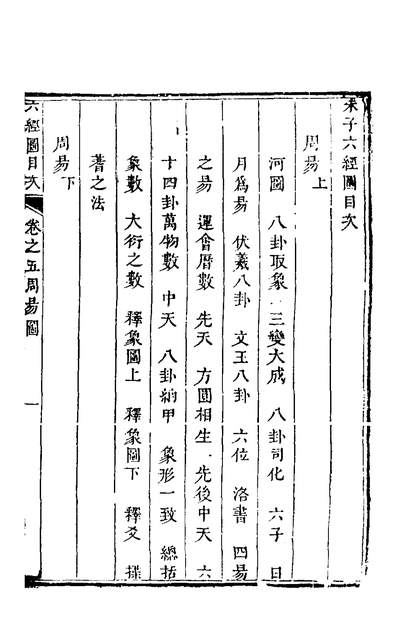 朱子六經圖目次
周易上
河圖 八卦取象 三變大成 八卦司化 六子 日
月爲易 伏羲八卦 文王八卦 六位 洛書 四易
之易 運會曆數 先天 方圓相生 先後中天 六
十四卦萬物數 中天 八卦納甲 象形一致 總括
象數 大衍之數 釋象圖上 釋象圖下 釋爻 揲
蓍之法
周易下
六經圖目次 卷之五周易圖 一